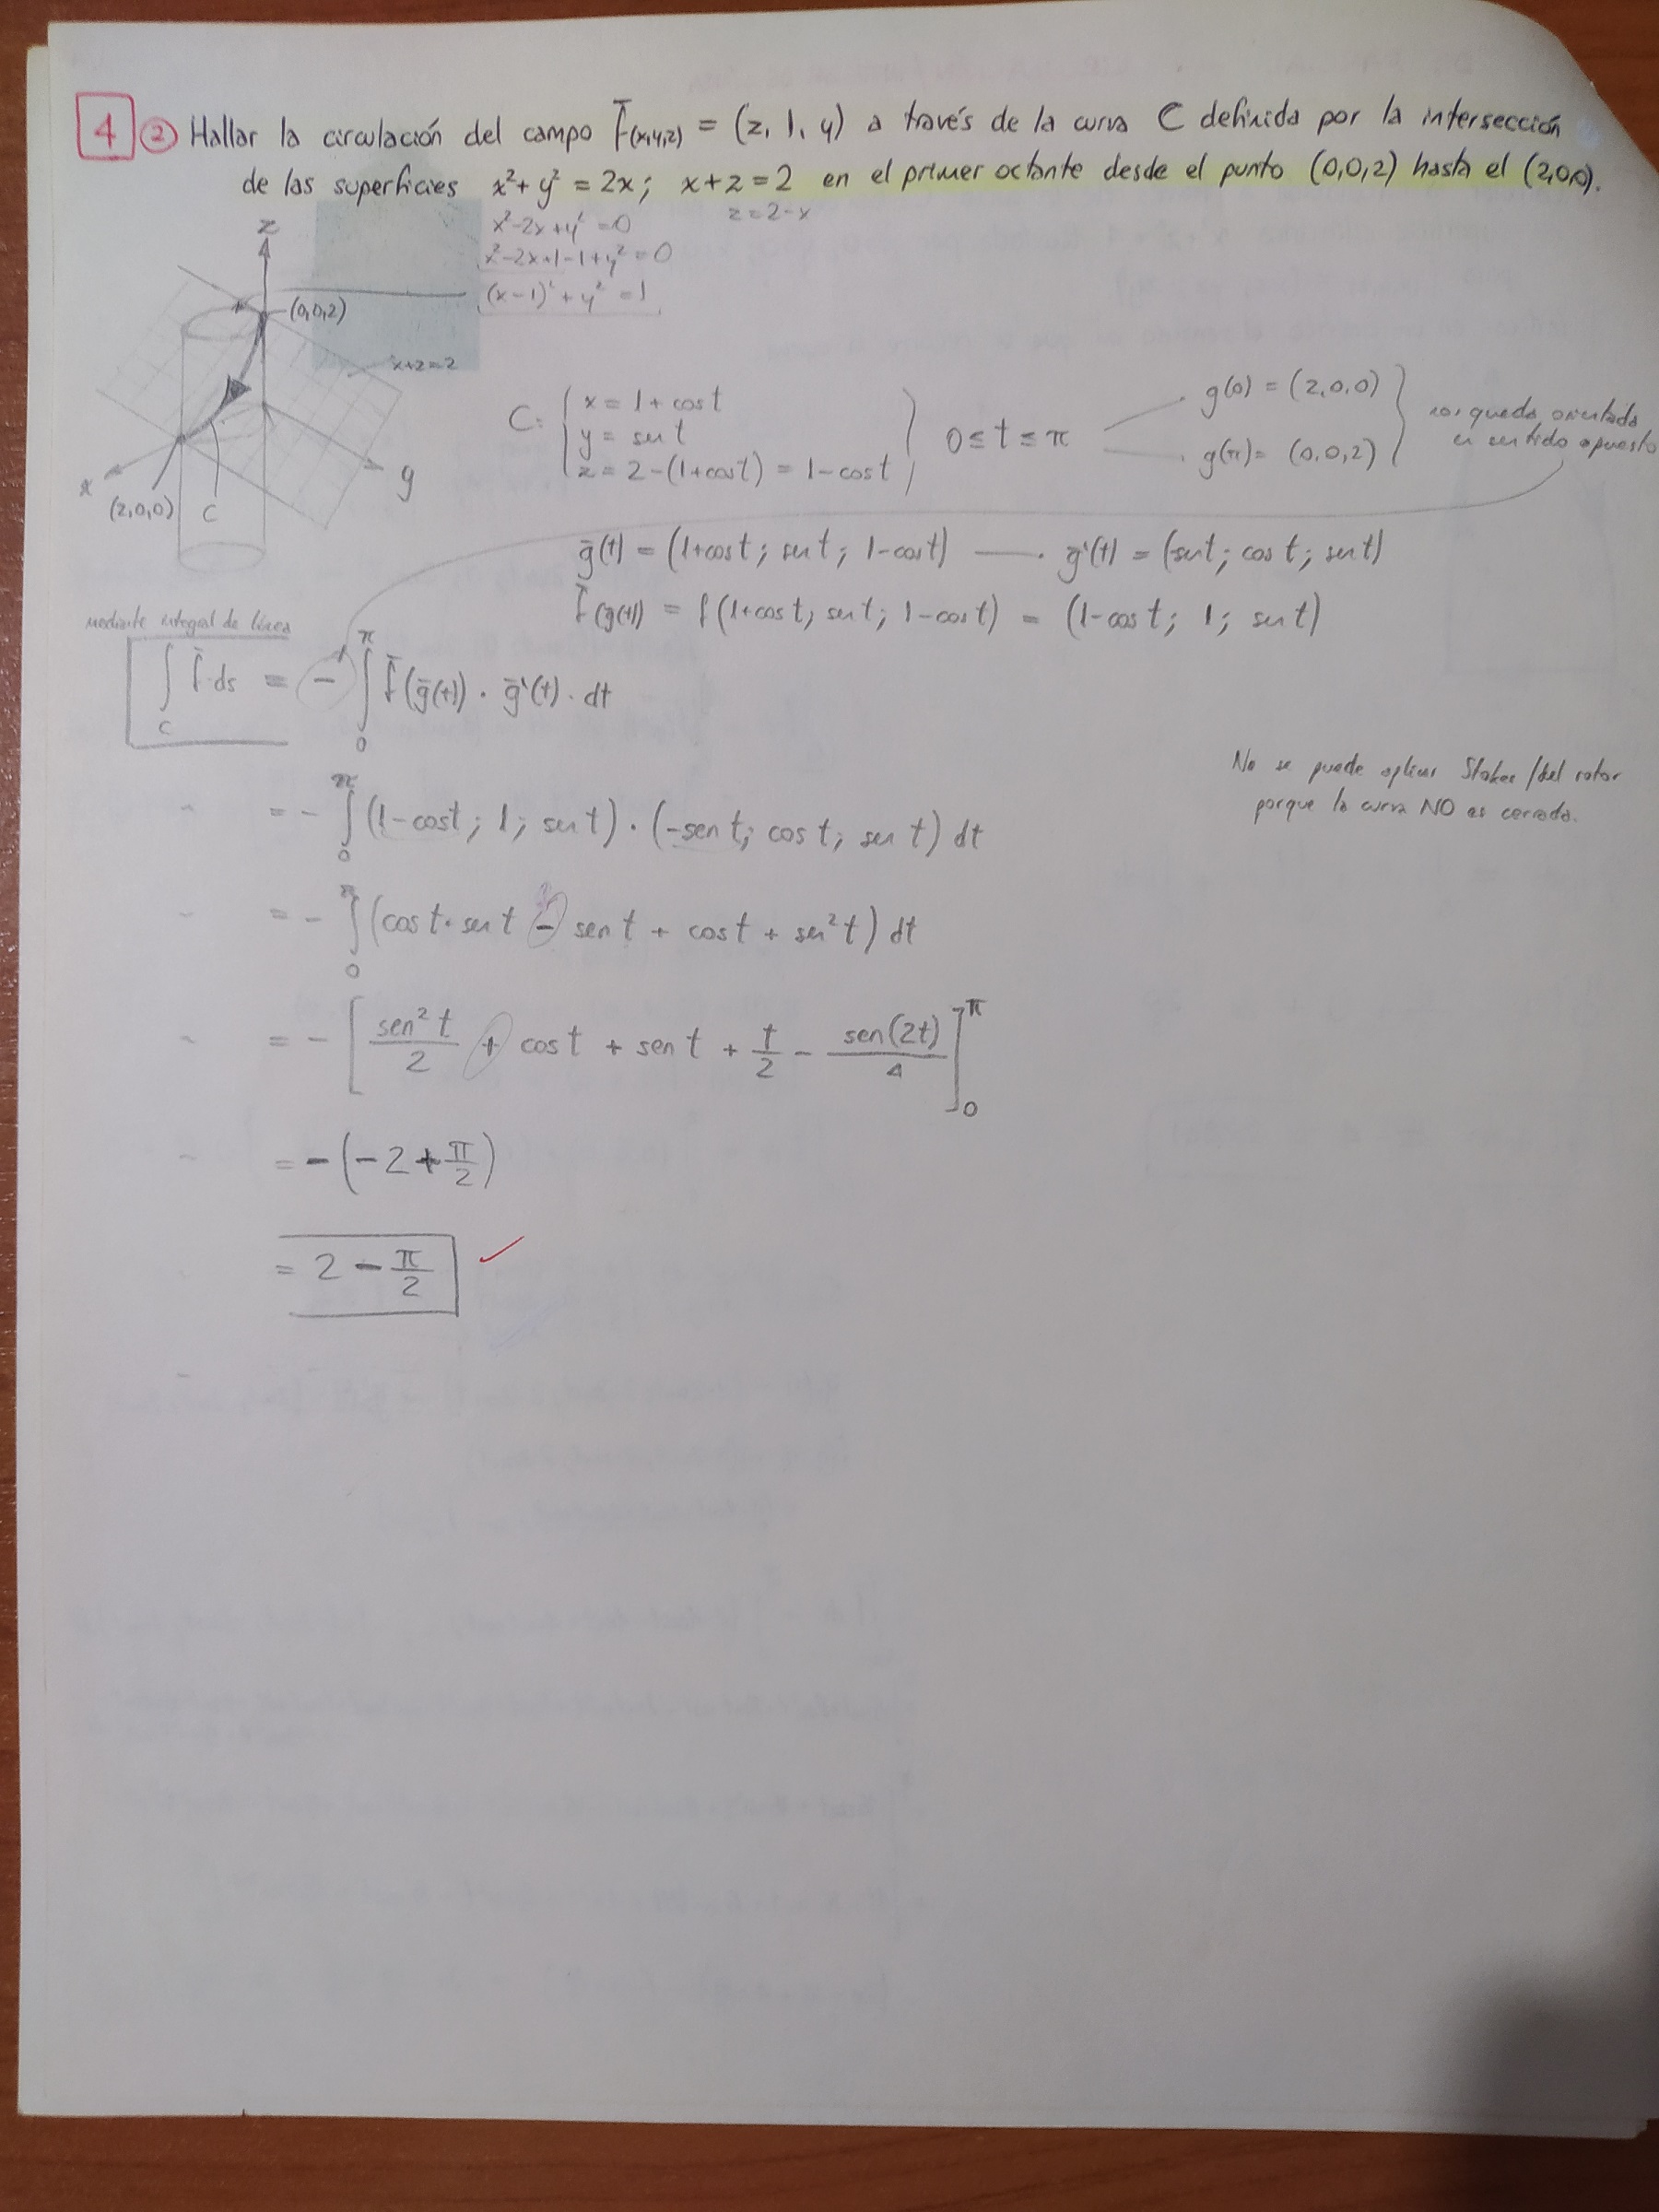 4 ② Hallar la circulación del campo f̄(x,y,z) = (z, 1, y) a través de la curva C definida por la intersección
de las superficies x²+y² = 2x; x+z=2 en el primer octante desde el punto (0,0,2) hasta el (2,0,0).
z=2-x
x²-2x+y²=0
x²-2x+1-1+y²=0
(x-1)²+y²=1
z
(0,0,2)
x+z=2
x
y
(2,0,0) C
C: { x = 1+cost
y = sen t
z = 2-(1+cost) = 1-cost
0≤t≤π
g(0) = (2,0,0)
g(π) = (0,0,2)
queda orientada
en sentido opuesto
ḡ(t) = (1+cost; sen t; 1-cost) — ḡ'(t) = (-sent; cos t; sen t)
f̄(ḡ(t)) = f(1+cost; sen t; 1-cost) = (1-cost; 1; sen t)
mediante integral de línea
∫_C f̄·ds = - ∫_0^π f̄(ḡ(t)) · ḡ'(t) · dt
No se puede aplicar Stokes/del rotor
porque la curva NO es cerrada.
= - ∫_0^π (1-cost; 1; sen t) · (-sen t; cost; sen t) dt
= - ∫_0^π (cos t · sen t - sen t + cos t + sen² t) dt
= - [ sen² t/2 + cos t + sen t + t/2 - sen(2t)/4 ]_0^π
= - (-2 + π/2)
= 2 - π/2 ✓